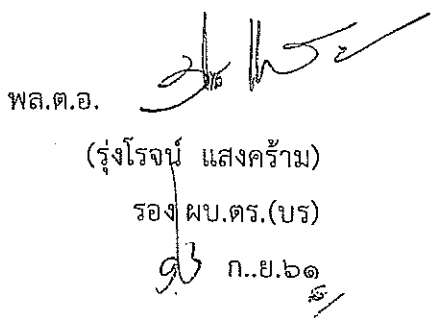 พล.ต.อ.
(รุ่งโรจน์ แสงคร้าม)
รอง ผบ.ตร.(บร)
ก..ย.๖๑